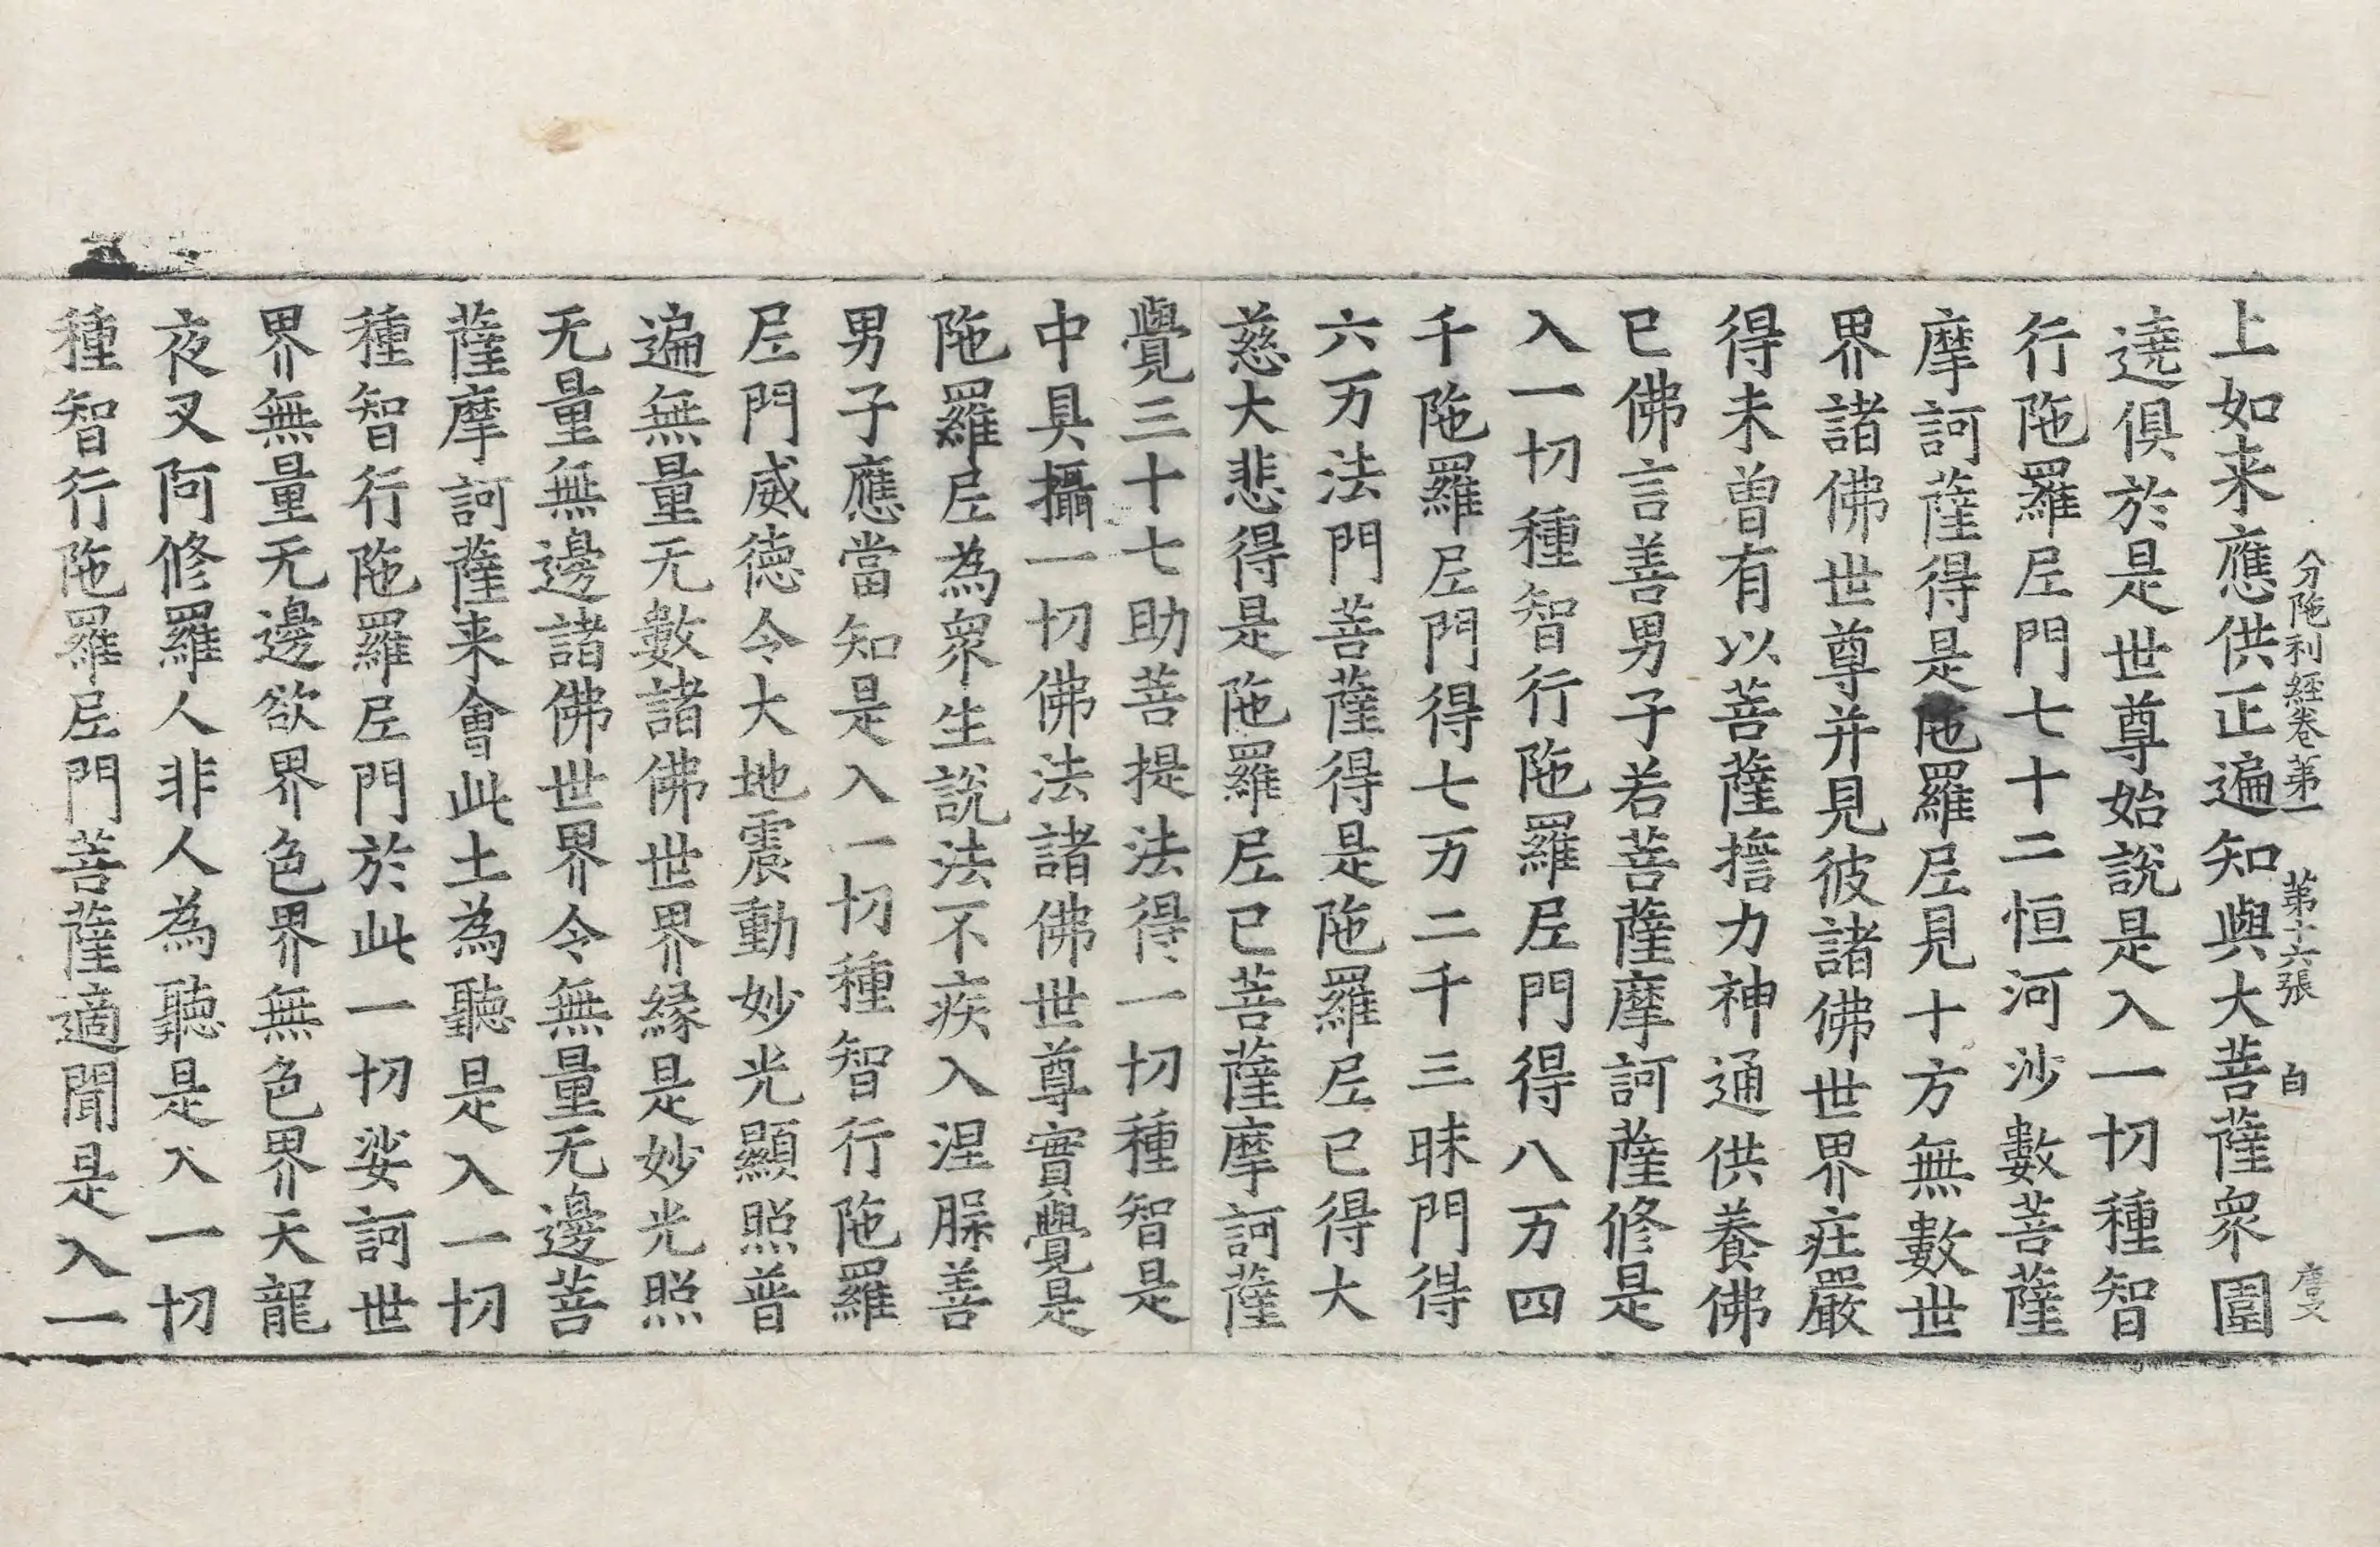 分陁利經卷第一 第十六張 白
上如来應供正遍知與大菩薩衆圍
遶俱於是世尊始說是入一切種智
行陁羅尼門七十二恒河沙數菩薩
摩訶薩得是陁羅尼見十方無數世
界諸佛世尊并見彼諸佛世界庄嚴
得未曾有以菩薩擔力神通供養佛
已佛言善男子若菩薩摩訶薩修是
入一切種智行陁羅尼門得八万四
千陁羅尼門得七万二千三昧門得
六万法門菩薩得是陁羅尼已得大
慈大悲得是陁羅尼已菩薩摩訶薩
覺三十七助菩提法得一切種智是
中具攝一切佛法諸佛世尊實覺是
陁羅尼為衆生說法不疾入涅槃善
男子應當知是入一切種智行陁羅
尼門威德令大地震動妙光顯照普
遍無量无數諸佛世界緣是妙光照
无量無邊諸佛世界令無量无邊菩
薩摩訶薩来會此土為聽是入一切
種智行陁羅尼門於此一切娑訶世
界無量无邊欲界色界無色界天龍
夜叉阿修羅人非人為聽是入一切
種智行陁羅尼門菩薩適聞是入一